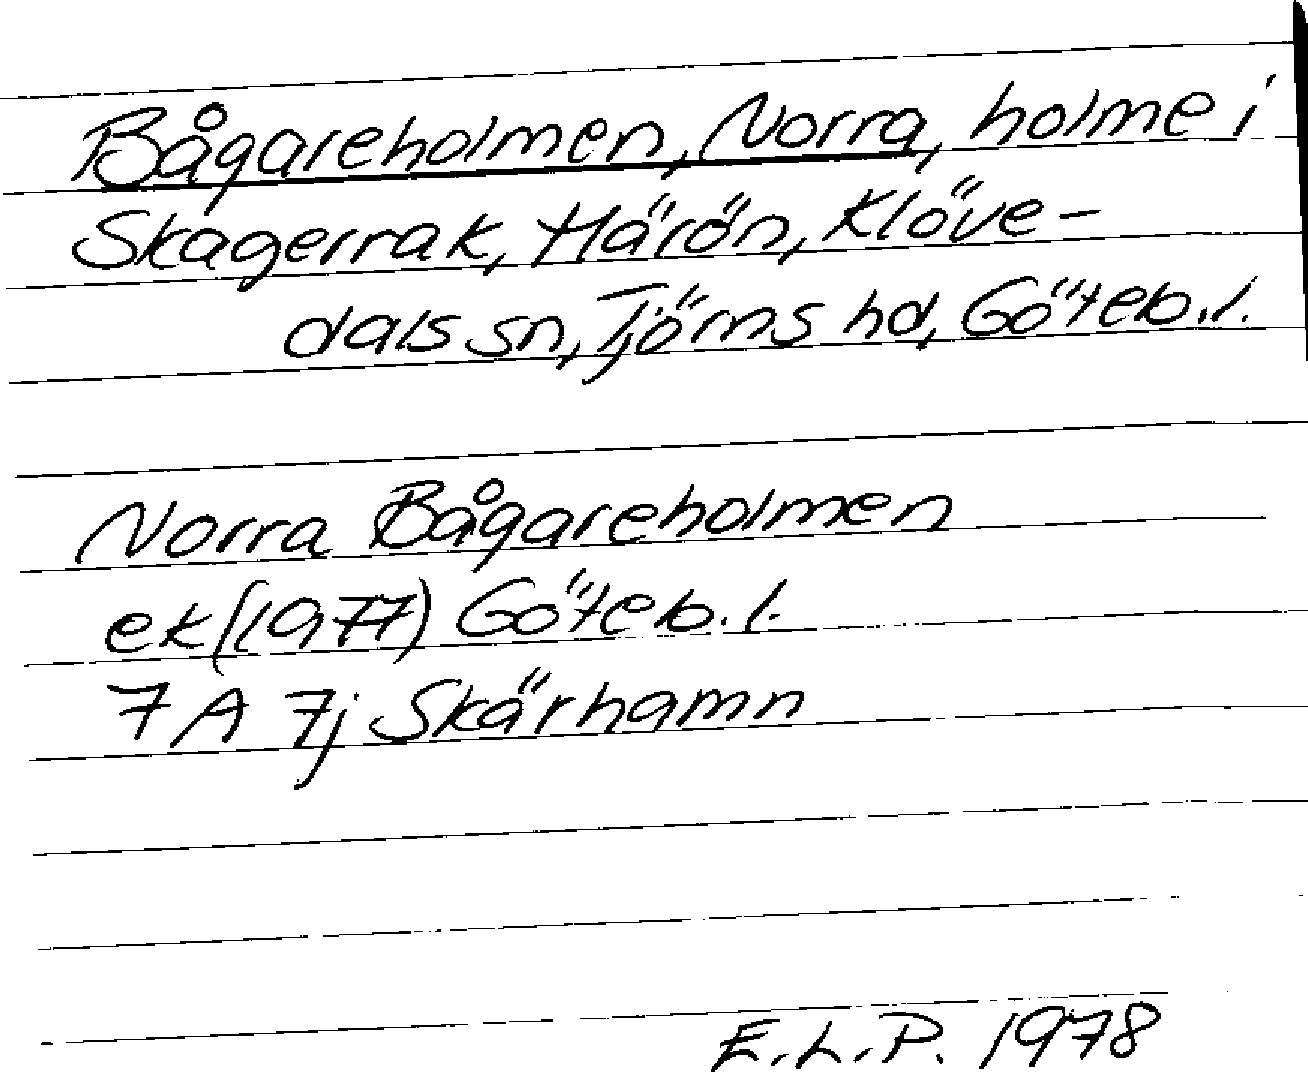 Bågareholmen, Norra, holme i
Skagerrak, Härön, Klöve-
dals sn, Tjörns hd, Göteb.l.
Norra Bågareholmen
ek (1977) Göteb.l.
7A 7j Skärhamn
E.L.P. 1978